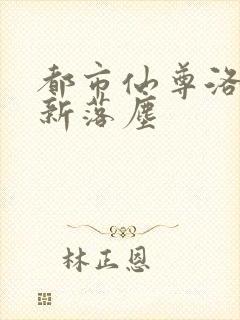 都市仙尊洛
新落尘
林正恩